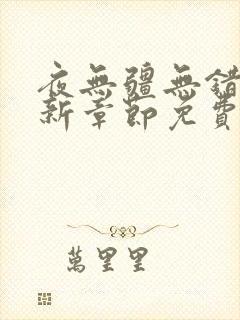 夜無疆無錯
新章節免費
萬里里